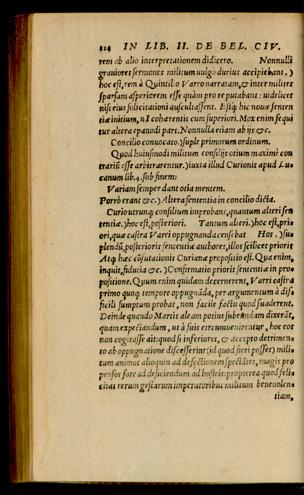 814 IN LIB. II. DE BEL. CIV.
rem ab alio interpretationem didicero. Nonnulli
grauiores sermones militum uulgò durius accipiebant.)
hoc est, rem à Quintilio Varro narratam, & inter milites
sparsam asperiorem esse quàm pro re putabant: uidelicet
nisi eius solicitationi auscultassent. Estq́; hic noua senten
tiæ initium, nō coherentis cum superiori. Mox enim sequi
tur altera epanodi part. Nonnulla etiam ab ijs &c.
Concilio conuocato.) suple primorum ordinum.
Quod huiusmodi militum consilijs otium maximè con
trariū esse arbitrarentur.) iuxta illud Curionis apud Lu
canum lib. 4. sub finem:
Variam semper dant otia mentem.
Porrò erant &c.) Altera sententia in concilio dicta.
Curio utrunq; consilium improbans, quantum alteri sen
tentiæ.) hoc est, posteriori. Tantum alteri.) hoc est, pria
ori, quæ castra Varri oppugnanda censebat. Hos.) su
plendū, posterioris sententiæ authores, illos scilicet prioris
Atq; hæc cōfutationis Curianæ propositio est. Qua enim,
inquit, fiducia &c.) Confirmatio prioris sententiæ in pro
positione. Quum enim quidam decernerent, Varri castra
primo quoq; tempore oppugnāda, per argumentum à dif
ficili sumptum probat, non facilè factu quod suaderent.
Deinde quando Martis aleam potius subeundam dixerāt,
quam expectandum, ut à suis circumuenirētur, hoc eos
non cogitasse ait: quod si inferiores, & accepto detrimen
to ab oppugnatione discesserint (id quod fieri posset) mili
tum animos alioquin ad defectionem spectātes, magis pro
pensos fore ad deficiendum ad hostes: propterea quod feli
citas rerum gestarum imperatoribus militum beneuolen
tiam,